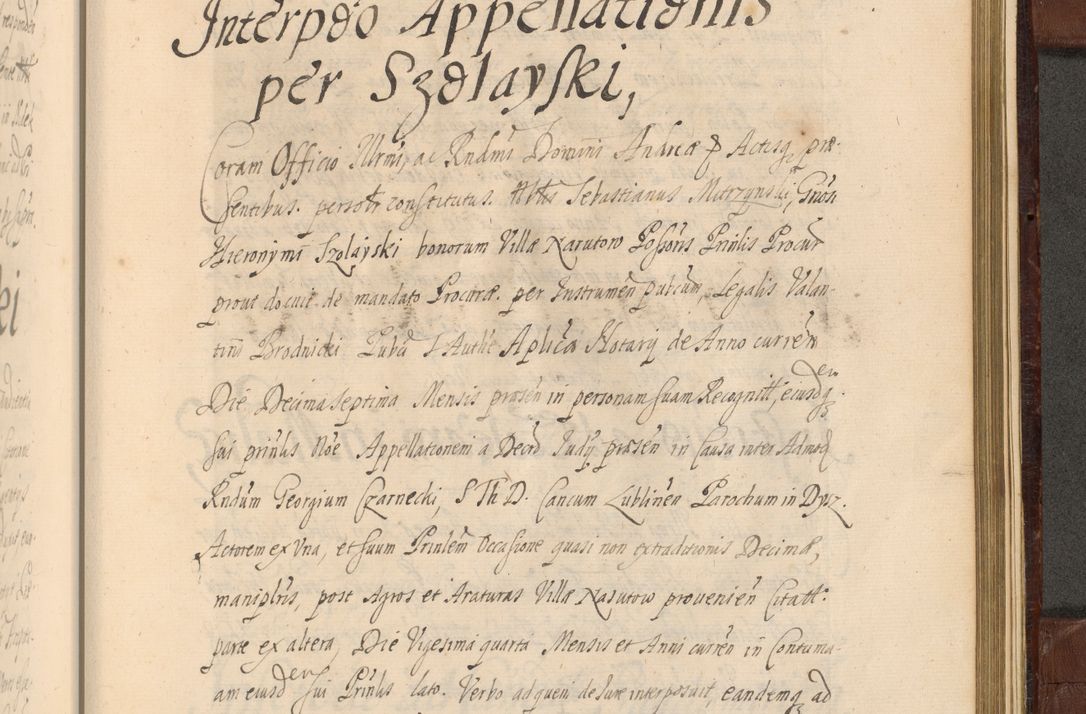 Interpõõ Appellationis
per Szolayski,
Coram Officio Illrmi, ac Rndmi Domini Andreæ & Actisq præ-
sentibus. personr constitutus. Nblis Sebastianus Mutrzynski, Gnosi
Hieronymi Szolayski bonorum Villæ Nasutow Possoris Prinlis Procur
prout docuit de mandato Procuræ. per Instrumen publicum, Legalis Valan-
tini Brodnicki Publi S Authe Aplica Notarij de Anno curren
Die Decima septima Mensis præsen in personam suam Recognitt, eiusdemq
sui prinlis Noe Appellationem a Decre Judij præsen in Causa inter Admod
Rndum Georgium Czarnecki, S Th D. Cancum Lublinen Parochum in Dysz.
Actorem ex Una, et suum Prinlem occasione quasi non extraditionis Decimæ,
manipliris, post Agros et Araturas Villæ Nasutow provenien Citatt
parte ex altera, Die Vigesima quarta Mensis et Anni curren in Contuma-
am eiusdem sui Prinlis lato. Verbo ad quem de Jure interposuit, eandemq ad